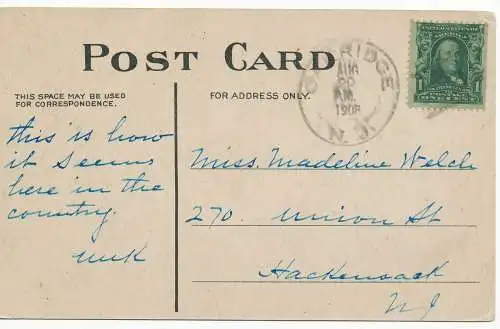 POST CARD
THIS SPACE MAY BE USED
FOR CORRESPONDENCE.
FOR ADDRESS ONLY.
this is how
it seems
here in the
country.
Miss. Madeline Welch
270. Union St
Hackensack
NJ
AUG
1908
N.J.
UNITED STATES OF AMERICA
1
1